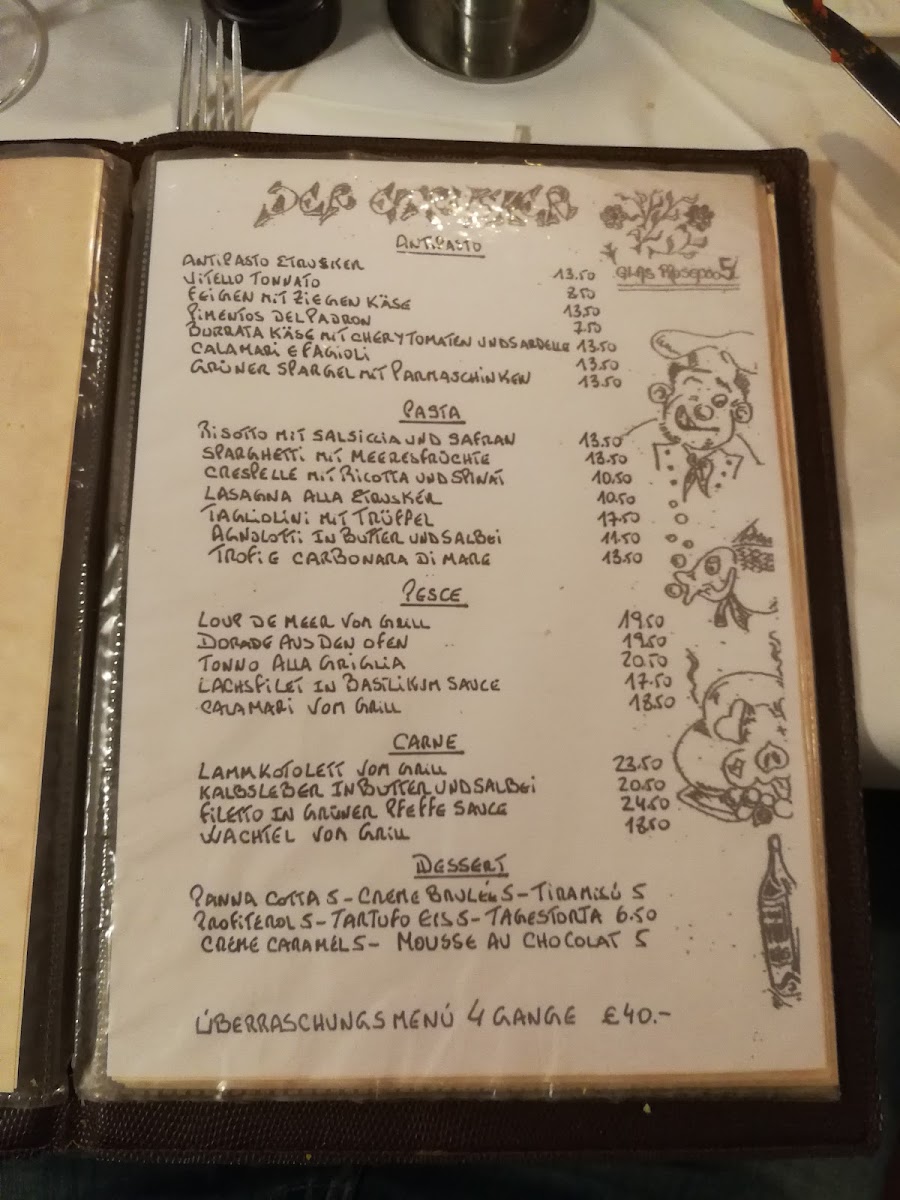 DER ETRUSKER
GLAS PROSECCO 5
ANTIPASTO
ANTIPASTO ETRUSKER 13.50
VITELLO TONNATO 8.50
FEIGEN MIT ZIEGEN KÄSE 13.50
PIMENTOS DEL PADRON 7.50
BURRATA KÄSE MIT CHERYTOMATEN UND SARDELLE 13.50
CALAMARI E FAGIOLI 13.50
GRÜNER SPARGEL MIT PARMASCHINKEN 13.50
PASTA
RISOTTO MIT SALSICCIA UND SAFRAN 13.50
SPARGHETTI MIT MEERESFRÜCHTE 13.50
CRESPELLE MIT RICOTTA UND SPINAT 10.50
LASAGNA ALLA ETRUSKER 10.50
TAGLIOLINI MIT TRÜFFEL 17.50
AGNOLOTTI IN BUTTER UND SALBEI 11.50
TROFIE CARBONARA DI MARE 13.50
PESCE
LOUP DE MEER VOM GRILL 19.50
DORADE AUS DEN OFEN 19.50
TONNO ALLA GRIGLIA 20.50
LACHSFILET IN BASILIKUM SAUCE 17.50
CALAMARI VOM GRILL 18.50
CARNE
LAMMKOTOLETT VOM GRILL 23.50
KALBSLEBER IN BUTTER UND SALBEI 20.50
FILETTO IN GRÜNER PFEFFE SAUCE 24.50
WACHTEL VOM GRILL 18.50
DESSERT
PANNA COTTA 5 - CREME BRULÉE 5 - TIRAMISÚ 5
PROFITEROL 5 - TARTUFO EIS 5 - TAGESTORTA 6.50
CRÉME CARAMEL 5 - MOUSSE AU CHOCOLAT 5
ÜBERRASCHUNGSMENÚ 4 GANGE £40.-